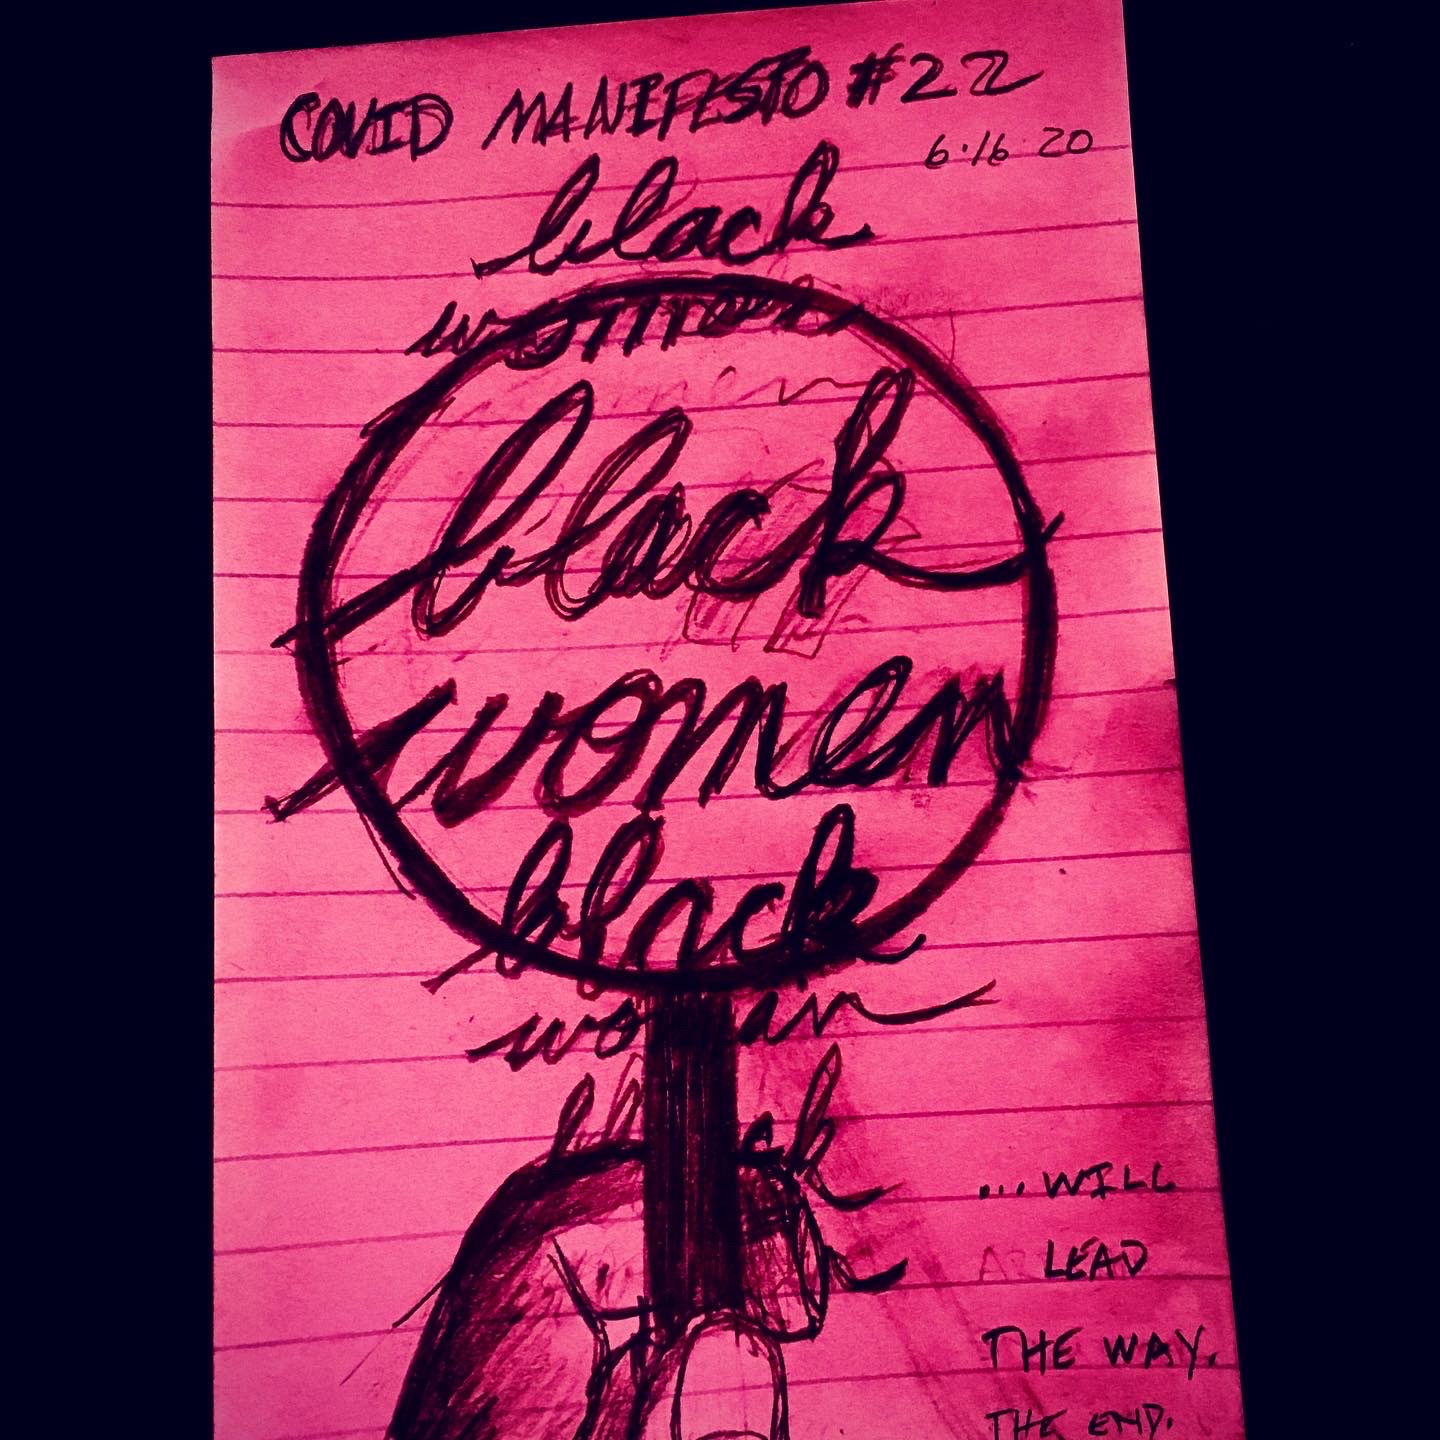 COVID MANIFESTO #22
6·16·20
black
women
black
women
black
black
...WILL
LEAD
THE WAY.
THE END.